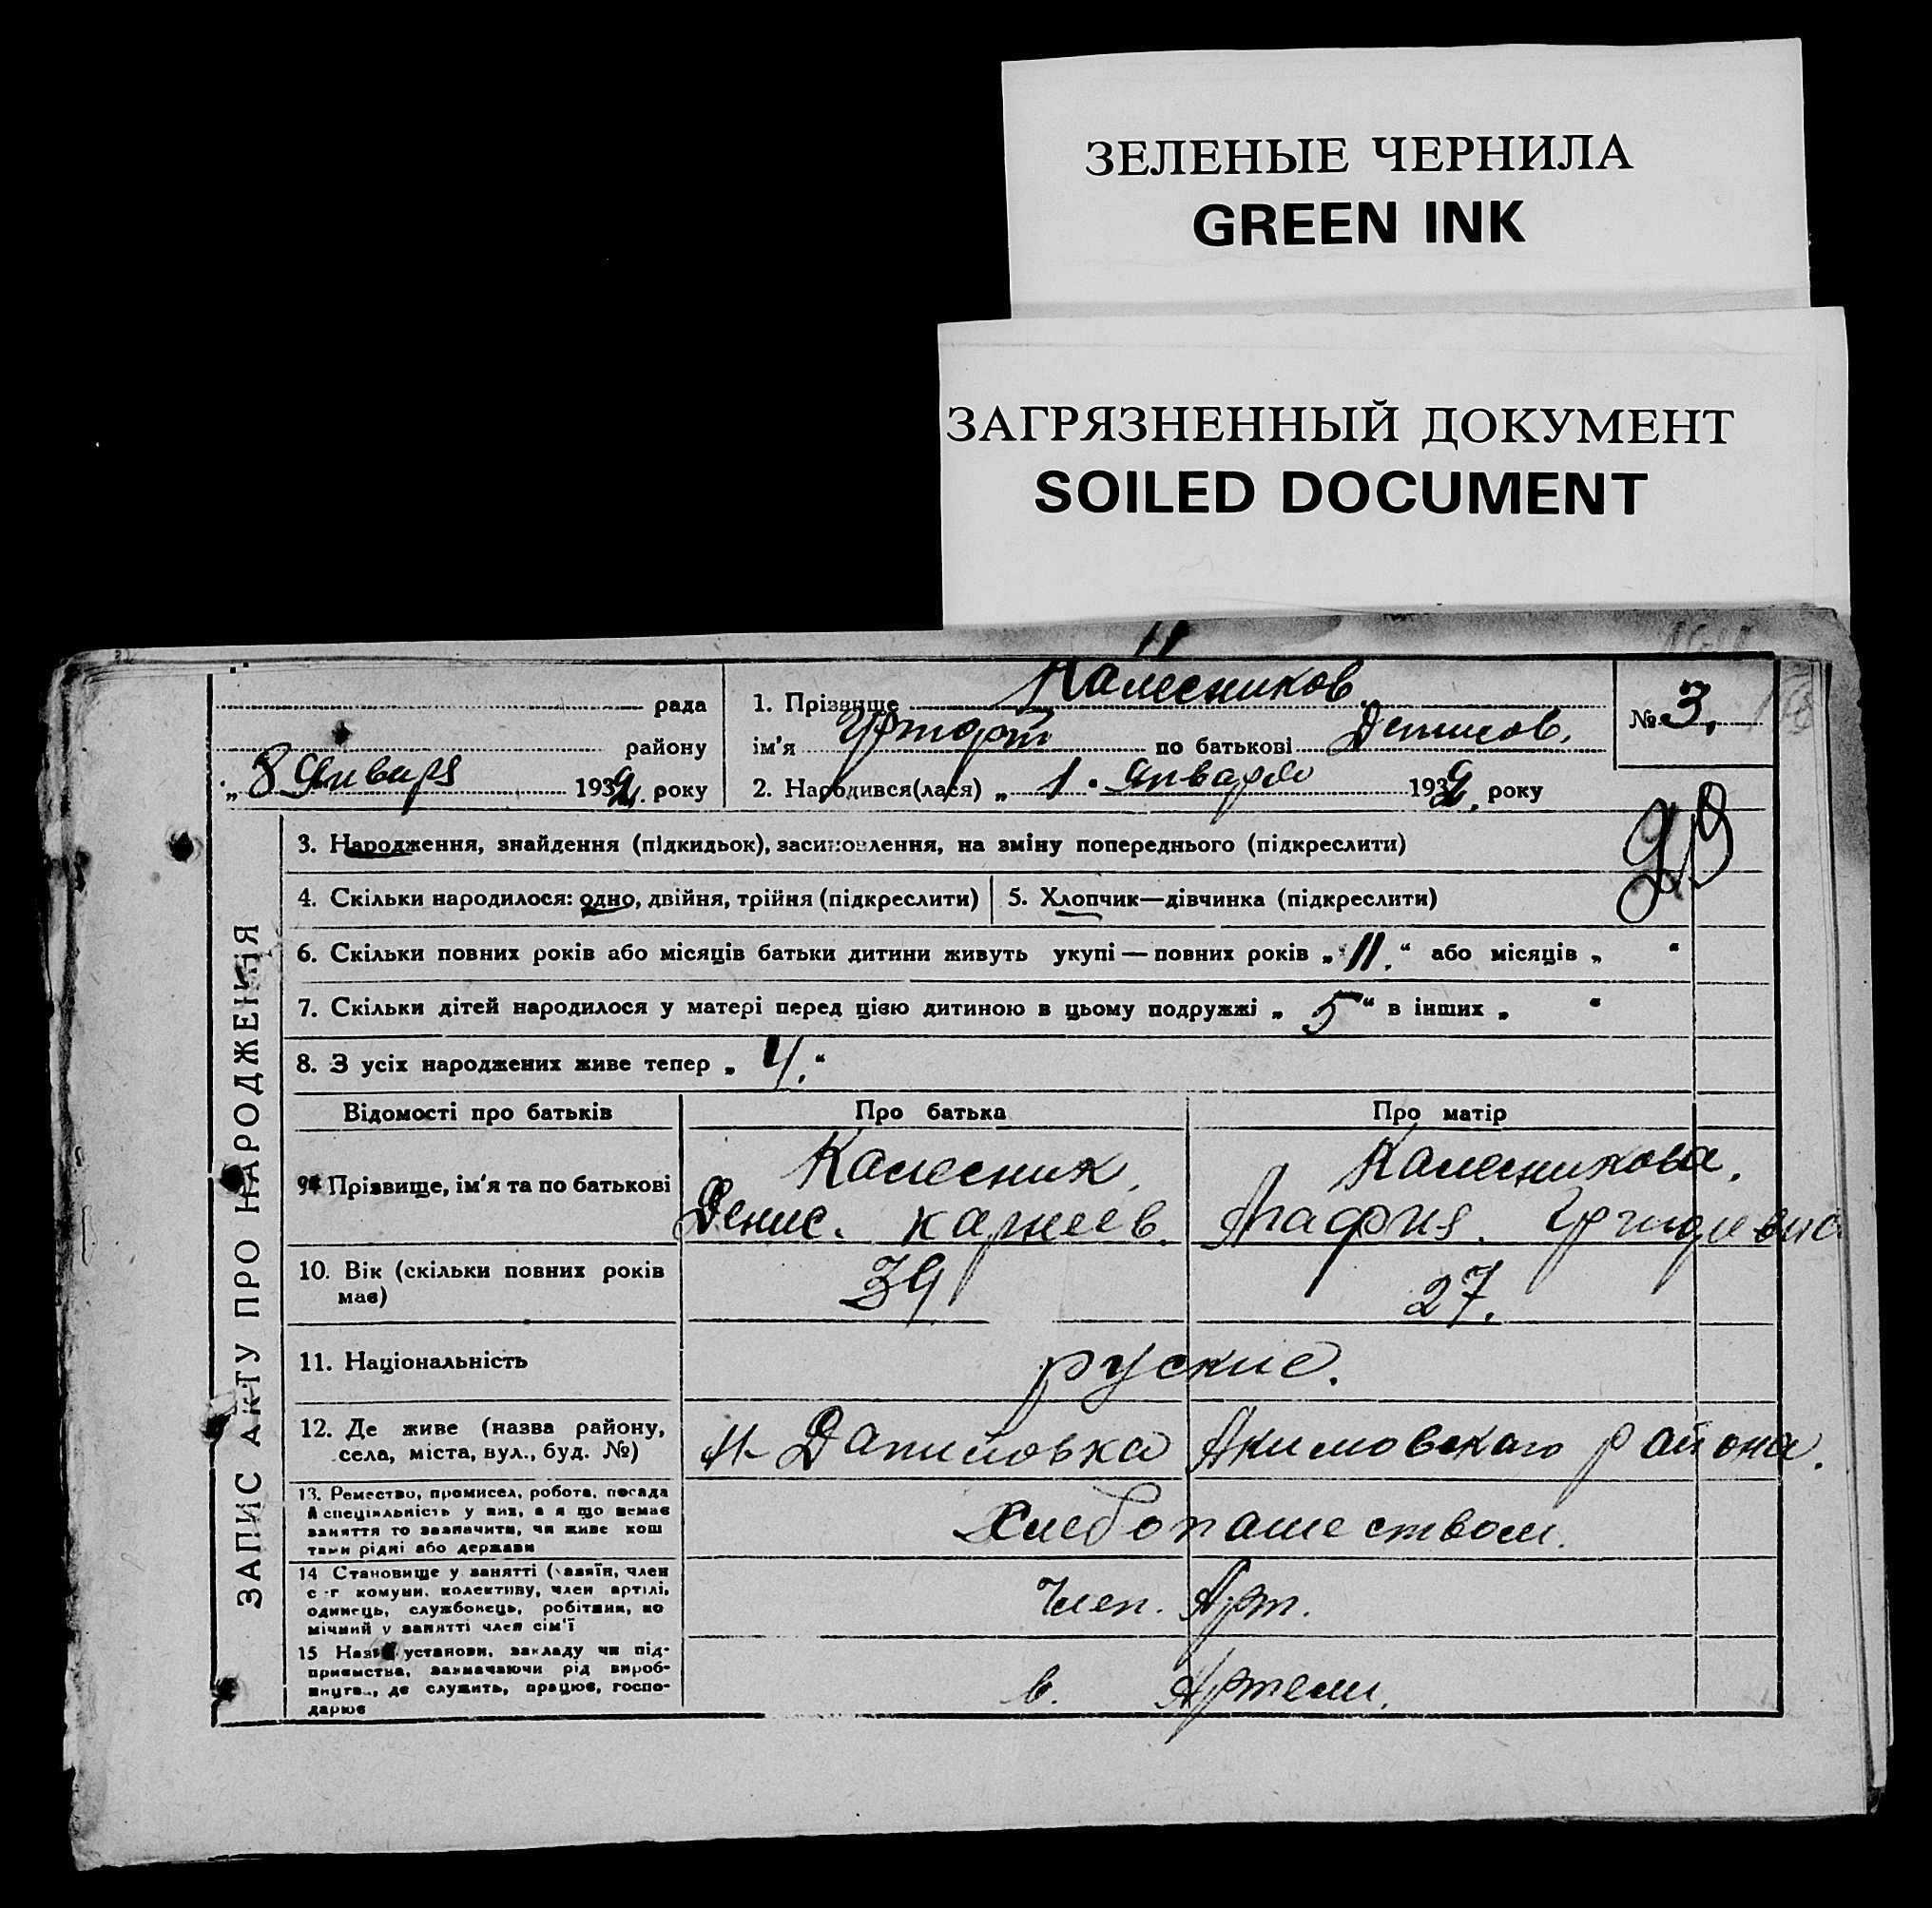 ЗЕЛЕНЫЕ ЧЕРНИЛА
GREEN INK
ЗАГРЯЗНЕННЫЙ ДОКУМЕНТ
SOILED DOCUMENT
рада
району
„ 8 Январь 1932. року
1. Прізвище Калесников
ім'я по батькові Денисов.
2. Народився(лася) „ 1. Января 1932. року
№ 3.
ЗАПИС АКТУ ПРО НАРОДЖЕННЯ
3. Народження, знайдення (підкидьок), засиновлення, на зміну попереднього (підкреслити)
4. Скільки народилося: одно, двійня, трійня (підкреслити)
5. Хлопчик—дівчинка (підкреслити)
6. Скільки повних років або місяців батьки дитини живуть укупі — повних років „ 11. “ або місяців „ “
7. Скільки дітей народилося у матері перед цією дитиною в цьому подружжі „ 5 “ в інших „ “
8. З усіх народжених живе тепер „ 4. “
Відомості про батьків
Про батька
Про матір
9. Прізвище, ім'я та по батькові
Калесник.
Денис. карнеев.
Калесникова.
10. Вік (скільки повних років
має)
39
27.
11. Національність
руские.
12. Де живе (назва району,
села, міста, вул., буд. №)
Н-Даниловка Акимовского района.
13. Ремество, промисел, робота, посада
й спеціяльність у них, а я що немає
заняття то зазначити, чи живе кош
тами рідні або держави
Хлебопашеством.
14 Становище у занятті (хазяїн, член
с-г комуни, колективу, член артілі,
одинець, службонець, робітник, по
мічний у занятті член сім'ї
Член. Арт.
15 Назва установи, закладу чи під-
приємства, зазначаючи рід вироб-
ництв., де служить, працює, госпо-
дарює
в. Артели.